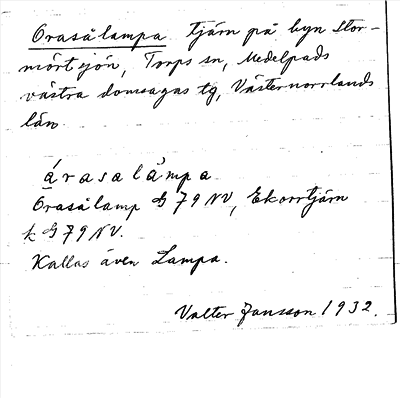 Orasålampa tjärn på byn Stor-
mörtsjön, Torps sn, Medelpads
västra domsagas tg, Västernorrlands
län.
årasalåmpa
Orasålamp G 79 NV, Ekorrtjärn
k G 79 NV.
Kallas även Lampa.
Valter Jansson 1932.